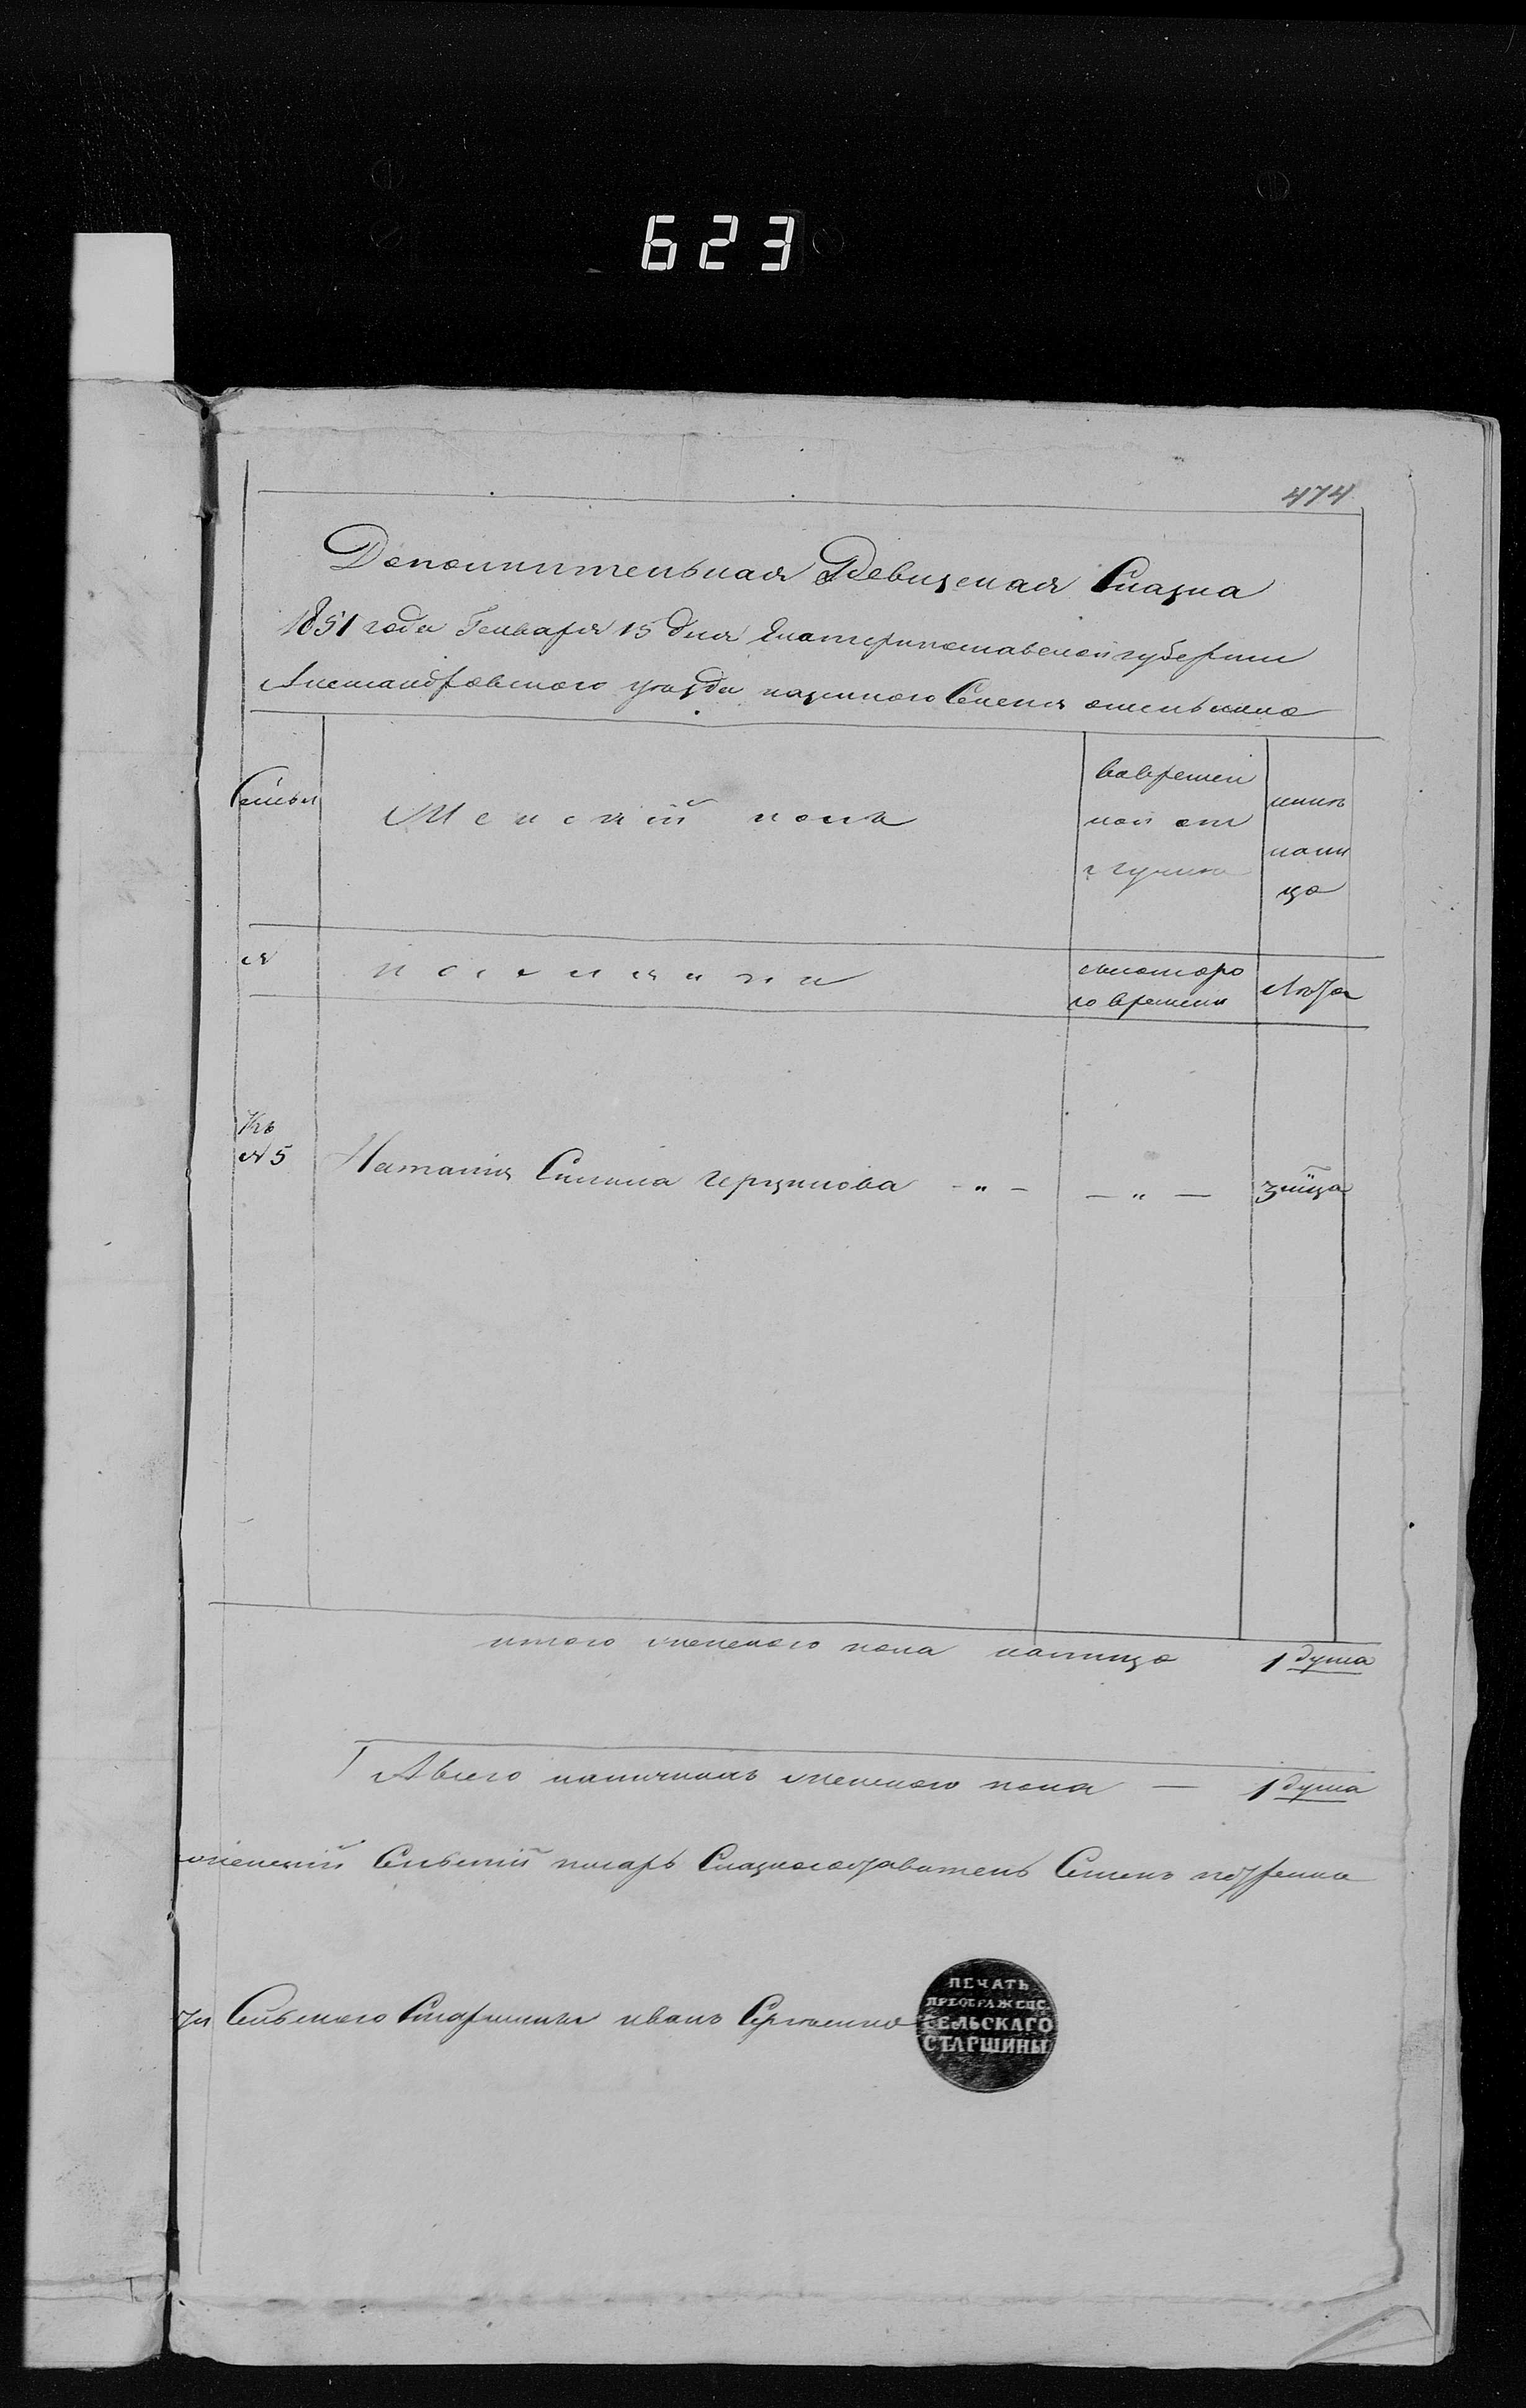 623
474
Дополнительная Ревизская Сказка
1851 года Генваря 15 дня Екатеринославской губернии
Александровского уезда казенного Селения
Семьи
Женский полъ
вовремен
ной от
лучке
ныне
нали
цо
№
скоторо
го времени
Лета
Къ
№ 5
Наталия
— „ —
— „ —
итого женского пола налицо 1 душа
Авсего наличныхъ женского пола — 1 душа
Сельский писарь Сказкосоставитель Семенъ
Сельского Старшины иванъ Сергиенко
ПЕЧАТЬ
ПРЕОБРАЖЕНС.
СЕЛЬСКАГО
СТАРШИНЫ